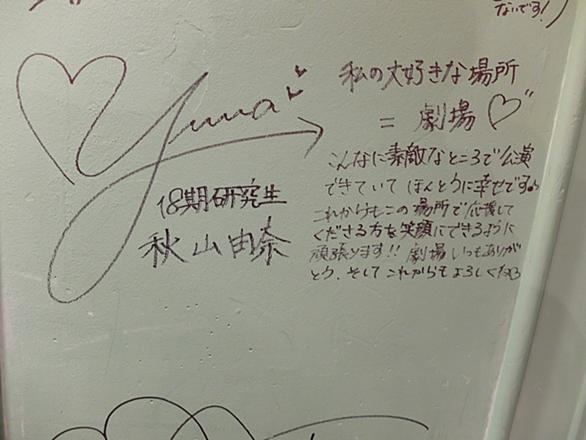 ないです!)
Yuna
18期研究生
秋山由奈
私の大好きな場所
= 劇場♡
こんなに素敵なところで公演
できていて ほんとうに幸せです。
これからもこの場所で応援して
くださる方を笑顔にできるように
頑張ります!! 劇場 いつもありが
とう、そしてこれからもよろしくね